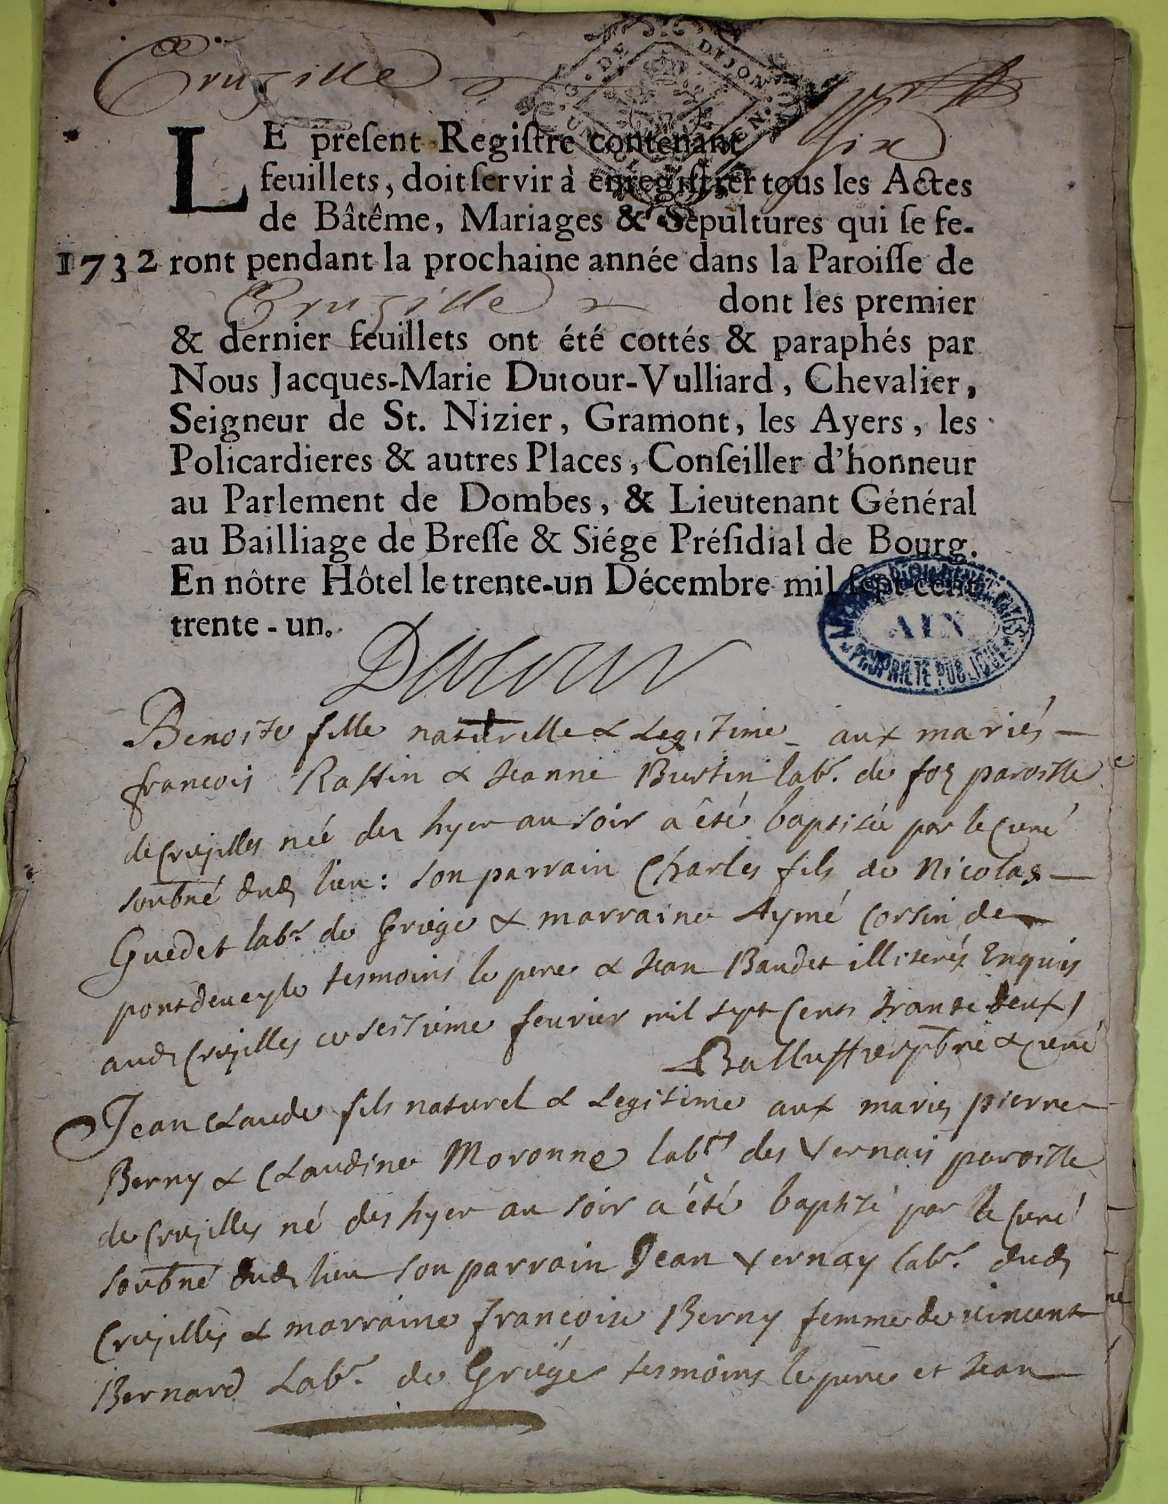 Cruzille
G. DE DIJON
LE preſent Regiſtre contenant six
feuillets, doit ſervir à enregiſtrer tous les Actes
de Bâtême, Mariages & Sepultures qui ſe fe-
1732 ront pendant la prochaine année dans la Paroiſſe de
Cruzille dont les premier
& dernier feuillets ont été cottés & paraphés par
Nous Jacques-Marie Dutour-Vulliard, Chevalier,
Seigneur de St. Nizier, Gramont, les Ayers, les
Policardieres & autres Places, Conſeiller d'honneur
au Parlement de Dombes, & Lieutenant Général
au Bailliage de Breſſe & Siége Préſidial de Bourg.
En nôtre Hôtel le trente-un Décembre mil ſept cent
trente-un.
AIN
PROPRIETE PUBLIQUE
Dutour
Benoite fille naturelle & Legitime aux mariés
francois Rassin & Jeanne Burtin lab.r de paroisse
de Crusilles née des hyer au soir a été baptisée par le Curé
soubné dud lieu: son parrain Charles fils de Nicolas
Guedet lab.r de Griege & marraine Aymé Corsin de
pontdeueyle tesmoins le pere & Jean Baudet illiterés Enquis
aud Crusilles ce sesieme feurier mil sept Cents trante deux
pbre & Curé
Jean Claude fils naturel & Legitime aux mariés pierre
Berny & Claudine Moronne lab.rs des Vernais paroisse
de Crusilles né des hyer au soir a été baptisé par le Curé
soubné dud lieu son parrain Jean Vernay lab.r dud
Crusilles & marraine francoise Berny femme de vincent
Bernard Lab.r de Griege tesmoins le pere et Jean